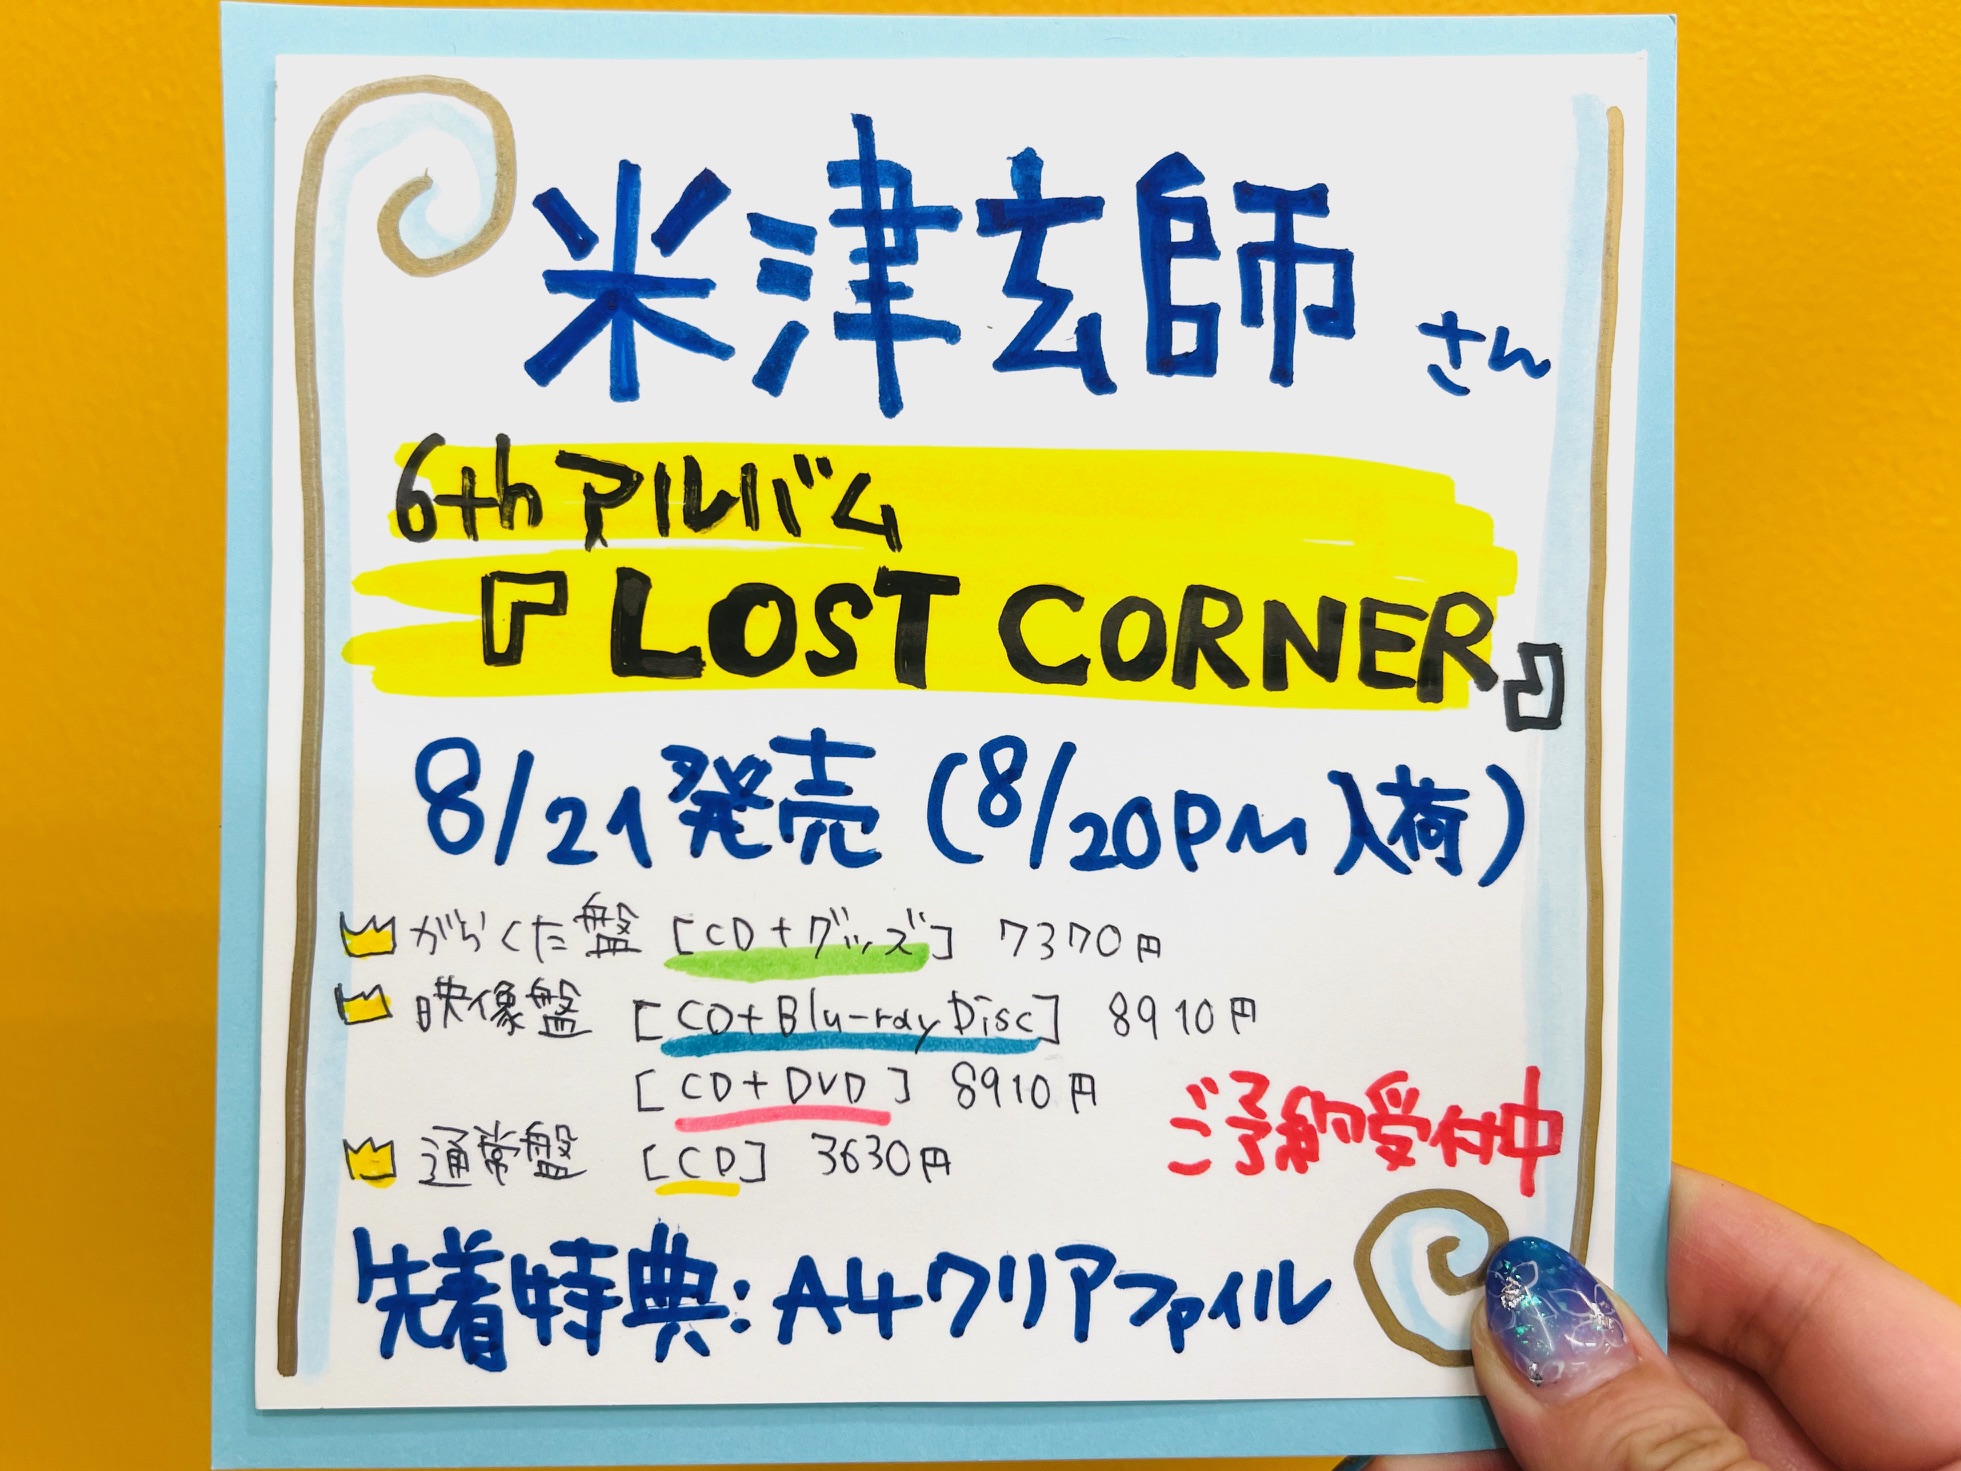 米津玄師 さん
6thアルバム
『LOST CORNER』
8/21発売(8/20PM入荷)
がらくた盤 [CD+グッズ] 7370円
映像盤 [CD+Blu-ray Disc] 8910円
[CD+DVD] 8910円
通常盤 [CD] 3630円
ご予約受付中
先着特典:A4クリアファイル